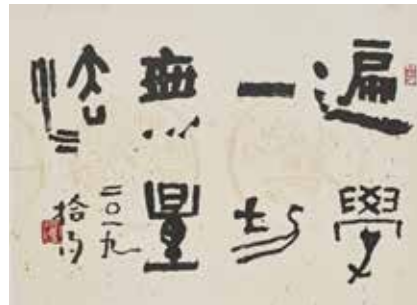 遍學
一切
無量
法
二〇一九